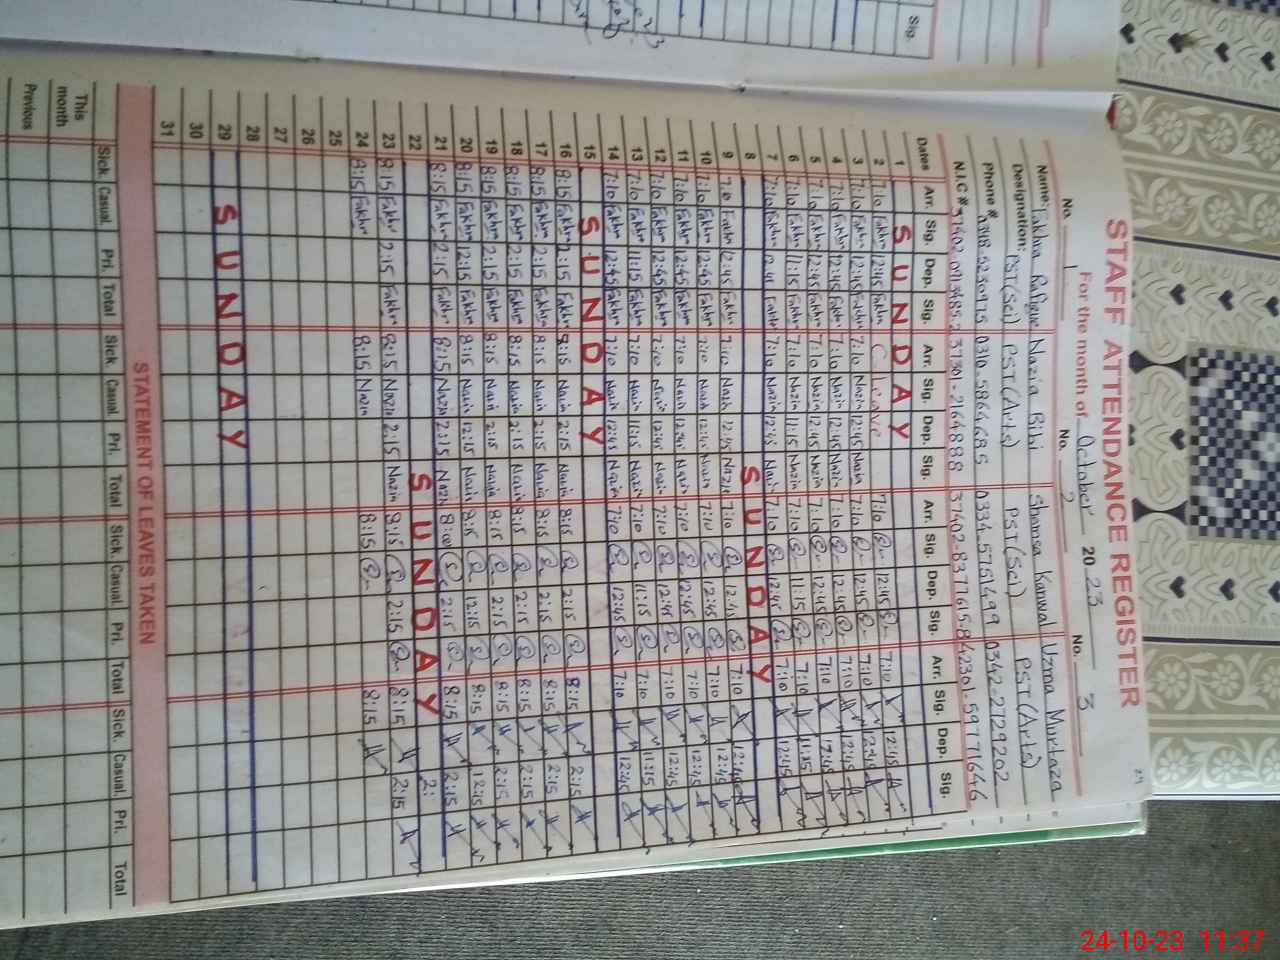 Sig.
STAFF ATTENDANCE REGISTER
For the month of October 2023
No. 1 No. 2 No. 3
Name: Fakhra Rafique Nazia Bibi Shamsa Kanwal Uzma Murtaza
Designation: PST(Sci) PST(Arts) PST(Sci) PST(Arts)
Phone # 0310-5864685 0334-5751499 0342-2729202
N.I.C #
Dates Arr. Sig. Dep. Sig. Arr. Sig. Dep. Sig. Arr. Sig. Dep. Sig. Arr. Sig. Dep. Sig.
1 SUNDAY
2 7:10 Fakhra 12:45 Fakhra C Leave 7:10 12:45 7:10 12:45
3 7:10 Fakhra 12:45 Fakhra 7:10 Nazia 2:45 Nazia 7:10 12:45 7:10 12:45
4 7:10 Fakhra 12:45 Fakhra 7:10 Nazia 12:45 Nazia 7:10 12:45 7:10 12:45
5 7:10 Fakhra 12:45 Fakhra 7:10 Nazia 12:45 Nazia 7:10 12:45 7:10 12:45
6 7:10 Fakhra 11:15 Fakhra 7:10 Nazia 11:15 Nazia 7:10 11:15 7:10 11:15
7 7:10 Fakhra 12:45 Fakhra 7:10 Nazia 12:45 Nazia 7:10 12:45 7:10 12:45
8 SUNDAY
9 7:10 Fakhra 12:45 Fakhra 7:10 Nazia 12:45 Nazia 7:10 12:45 7:10 12:45
10 7:10 Fakhra 12:45 Fakhra 7:10 Nazia 12:45 Nazia 7:10 12:45 7:10 12:45
11 7:10 Fakhra 12:45 Fakhra 7:10 Nazia 12:45 Nazia 7:10 12:45 7:10 12:45
12 7:10 Fakhra 12:45 Fakhra 7:10 Nazia 12:45 Nazia 7:10 12:45 7:10 12:45
13 7:10 Fakhra 11:15 Fakhra 7:10 Nazia 11:15 Nazia 7:10 11:15 7:10 11:15
14 7:10 Fakhra 12:45 Fakhra 7:10 Nazia 12:45 Nazia 7:10 12:45 7:10 12:45
15 SUNDAY
16 8:15 Fakhra 2:15 Fakhra 8:15 Nazia 2:15 Nazia 8:15 2:15 8:15 2:15
17 8:15 Fakhra 2:15 Fakhra 8:15 Nazia 2:15 Nazia 8:15 2:15 8:15 2:15
18 8:15 Fakhra 2:15 Fakhra 8:15 Nazia 2:15 Nazia 8:15 2:15 8:15 2:15
19 8:15 Fakhra 2:15 Fakhra 8:15 Nazia 2:15 Nazia 8:15 2:15 8:15 2:15
20 8:15 Fakhra 12:15 Fakhra 8:15 Nazia 12:15 Nazia 8:15 12:15 8:15 12:15
21 8:15 Fakhra 2:15 Fakhra 8:15 Nazia 2:15 Nazia 2:15 8:15 2:15
22 SUNDAY 2:
23 8:15 Fakhra 2:15 Fakhra 8:15 Nazia 2:15 Nazia 8:15 2:15 8:15 2:15
24 8:15 Fakhra 8:15 Nazia 8:15 8:15
25
26
27
28
29 SUNDAY
30
31
STATEMENT OF LEAVES TAKEN
Sick. Casual. Pri. Total Sick. Casual Pri. Total Sick. Casual. Pri. Total Sick. Casual. Pri. Total
This month
Previous
24-10-23 11:37